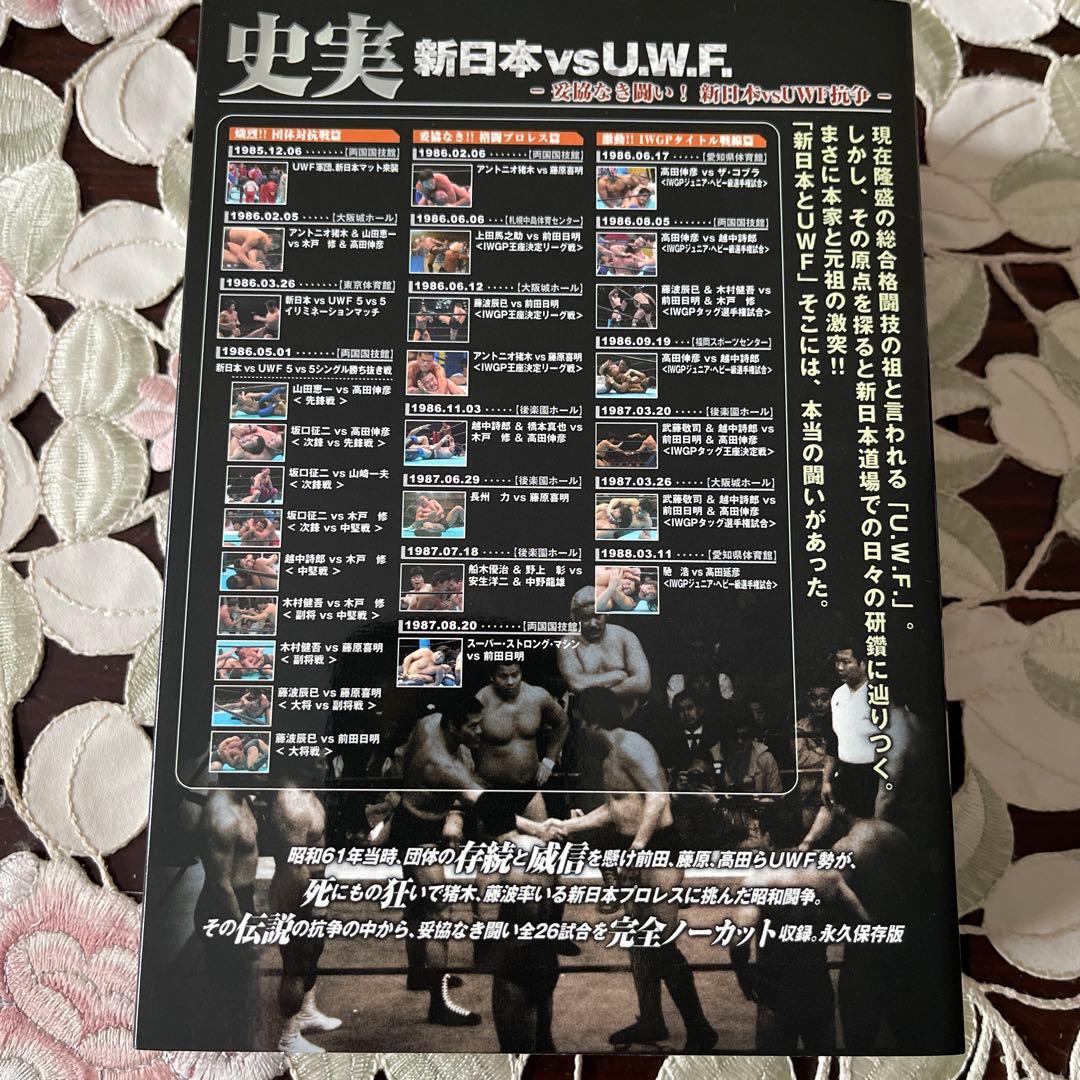 史実 新日本vsU.W.F.
- 妥協なき闘い！ 新日本vsUWF抗争 -
現在隆盛の総合格闘技の祖と言われる「U.W.F.」。
しかし、その原点を探ると新日本道場での日々の研鑽に辿りつく。
まさに本家と元祖の激突!!
「新日本とUWF」そこには、本当の闘いがあった。
熾烈!! 団体対抗戦篇
1985.12.06 ・・・・・・【両国国技館】
UWF軍団、新日本マット来襲
1986.02.05 ・・・・・【大阪城ホール】
アントニオ猪木 & 山田恵一
vs 木戸　修 & 高田伸彦
1986.03.26 ・・・・・・【東京体育館】
新日本 vs UWF 5 vs 5
イリミネーションマッチ
1986.05.01 ・・・・・・・【両国国技館】
新日本 vs UWF 5 vs 5シングル勝ち抜き戦
山田恵一 vs 高田伸彦
< 先鋒戦 >
坂口征二 vs 高田伸彦
< 次鋒 vs 先鋒戦 >
坂口征二 vs 山崎一夫
< 次鋒戦 >
坂口征二 vs 木戸　修
< 次鋒 vs 中堅戦 >
越中詩郎 vs 木戸　修
< 中堅戦 >
木村健吾 vs 木戸　修
< 副将 vs 中堅戦 >
木村健吾 vs 藤原喜明
< 副将戦 >
藤波辰巳 vs 藤原喜明
< 大将 vs 副将戦 >
藤波辰巳 vs 前田日明
< 大将戦 >
妥協なき!! 格闘プロレス篇
1986.02.06 ・・・・・・【両国国技館】
アントニオ猪木 vs 藤原喜明
1986.06.06 ・・・【札幌中島体育センター】
上田馬之助 vs 前田日明
<IWGP王座決定リーグ戦>
1986.06.12 ・・・・・【大阪城ホール】
藤波辰巳 vs 前田日明
<IWGP王座決定リーグ戦>
アントニオ猪木 vs 藤原喜明
<IWGP王座決定リーグ戦>
1986.11.03 ・・・・・【後楽園ホール】
越中詩郎 & 橋本真也 vs
木戸　修 & 高田伸彦
1987.06.29 ・・・・・【後楽園ホール】
長州　力 vs 藤原喜明
1987.07.18 ・・・・・【後楽園ホール】
船木優治 & 野上　彰 vs
安生洋二 & 中野龍雄
1987.08.20 ・・・・・・・【両国国技館】
スーパー・ストロング・マシン
vs 前田日明
激動!! IWGPタイトル戦線篇
1986.06.17 ・・・・・・【愛知県体育館】
高田伸彦 vs ザ・コブラ
<IWGPジュニア・ヘビー級選手権試合>
1986.08.05 ・・・・・・・【両国国技館】
高田伸彦 vs 越中詩郎
<IWGPジュニア・ヘビー級選手権試合>
藤波辰巳 & 木村健吾 vs
前田日明 & 木戸　修
<IWGPタッグ選手権試合>
1986.09.19 ・・・【福岡スポーツセンター】
高田伸彦 vs 越中詩郎
<IWGPジュニア・ヘビー級選手権試合>
1987.03.20 ・・・・・【後楽園ホール】
武藤敬司 & 越中詩郎 vs
前田日明 & 高田伸彦
<IWGPタッグ王座決定戦>
1987.03.26 ・・・・・【大阪城ホール】
武藤敬司 & 越中詩郎 vs
前田日明 & 高田伸彦
<IWGPタッグ選手権試合>
1988.03.11 ・・・・・【愛知県体育館】
馳　浩 vs 高田延彦
<IWGPジュニア・ヘビー級選手権試合>
昭和61年当時、団体の存続と威信を懸け前田、藤原、高田らUWF勢が、
死にもの狂いで猪木、藤波率いる新日本プロレスに挑んだ昭和闘争。
その伝説の抗争の中から、妥協なき闘い全26試合を完全ノーカット収録。永久保存版